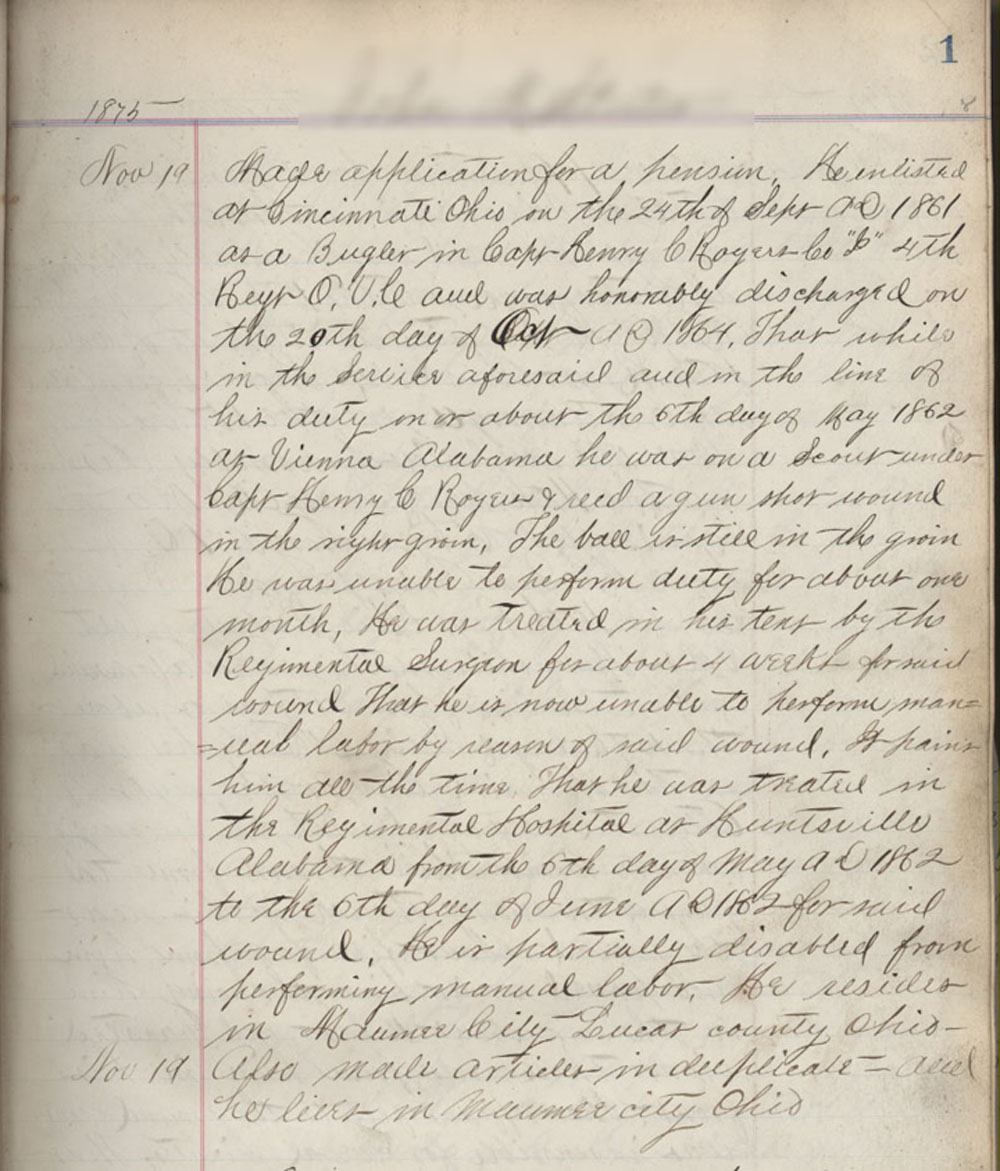 1
1875
Nov 19 Made application for a pension. He enlisted
at Cincinnati Ohio on the 24th of Sept AD 1861
as a Bugler in Capt Henry C Rogers Co 4th
Regt O.V.C and was honorably discharged on
the 20th day of Oct AD 1864. That while
in the Service aforesaid and in the line of
his duty on or about the 6th day of May 1862
at Vienna Alabama he was on a Scout under
Capt Henry C Rogers & recd a gun shot wound
in the right groin. The ball is still in the groin
He was unable to perform duty for about one
month, He was treated in his tent by the
Regimental Surgeon for about 4 weeks for said
wound That he is now unable to perform man=
=ual labor by reason of said wound. It pains
him all the time. That he was treated in
the Regimental Hospital at Huntsville
Alabama from the 6th day of May AD 1862
to the 6th day of June AD 1862 for said
wound. He is partially disabled from
performing manual labor. He resides
in Maumee City Lucas county Ohio–
Nov 19 Also made articles in duplicate – and
he lives in Maumee city Ohio